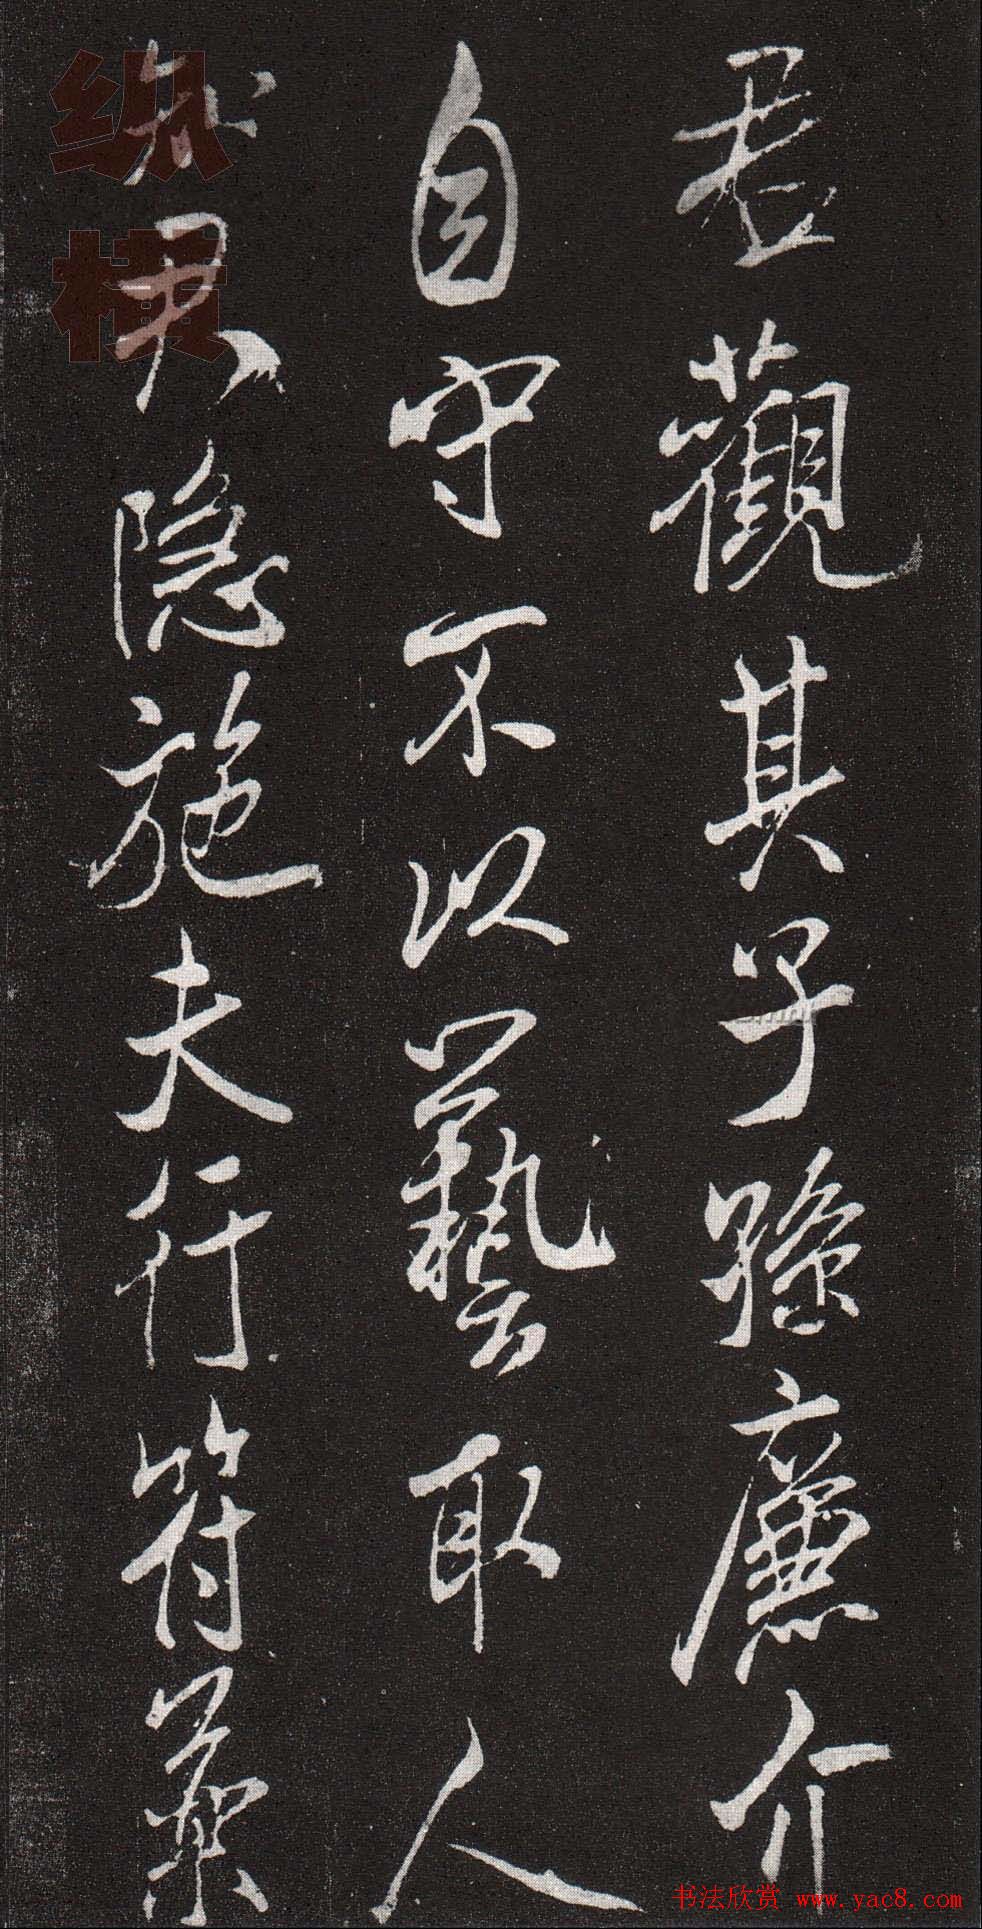 君觀其子雖廉介
自守不以藝取人
隐施夫行符藥
纵横
书法欣赏 www.yac8.com